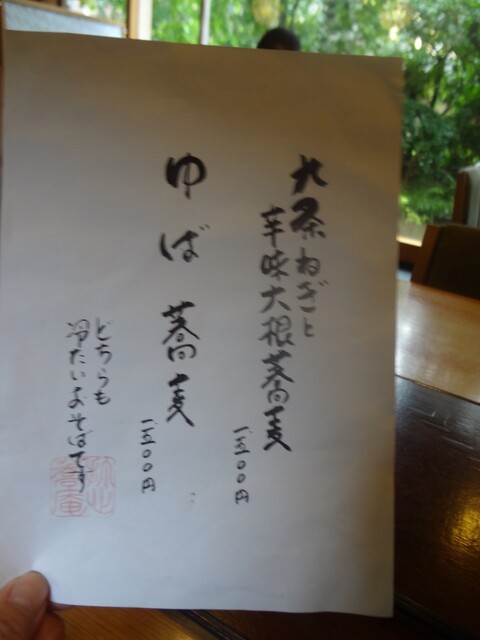 九条ねぎと
辛味大根蕎麦
一五〇〇円
ゆば蕎麦
一五〇〇円
どちらも
冷たいおそばです